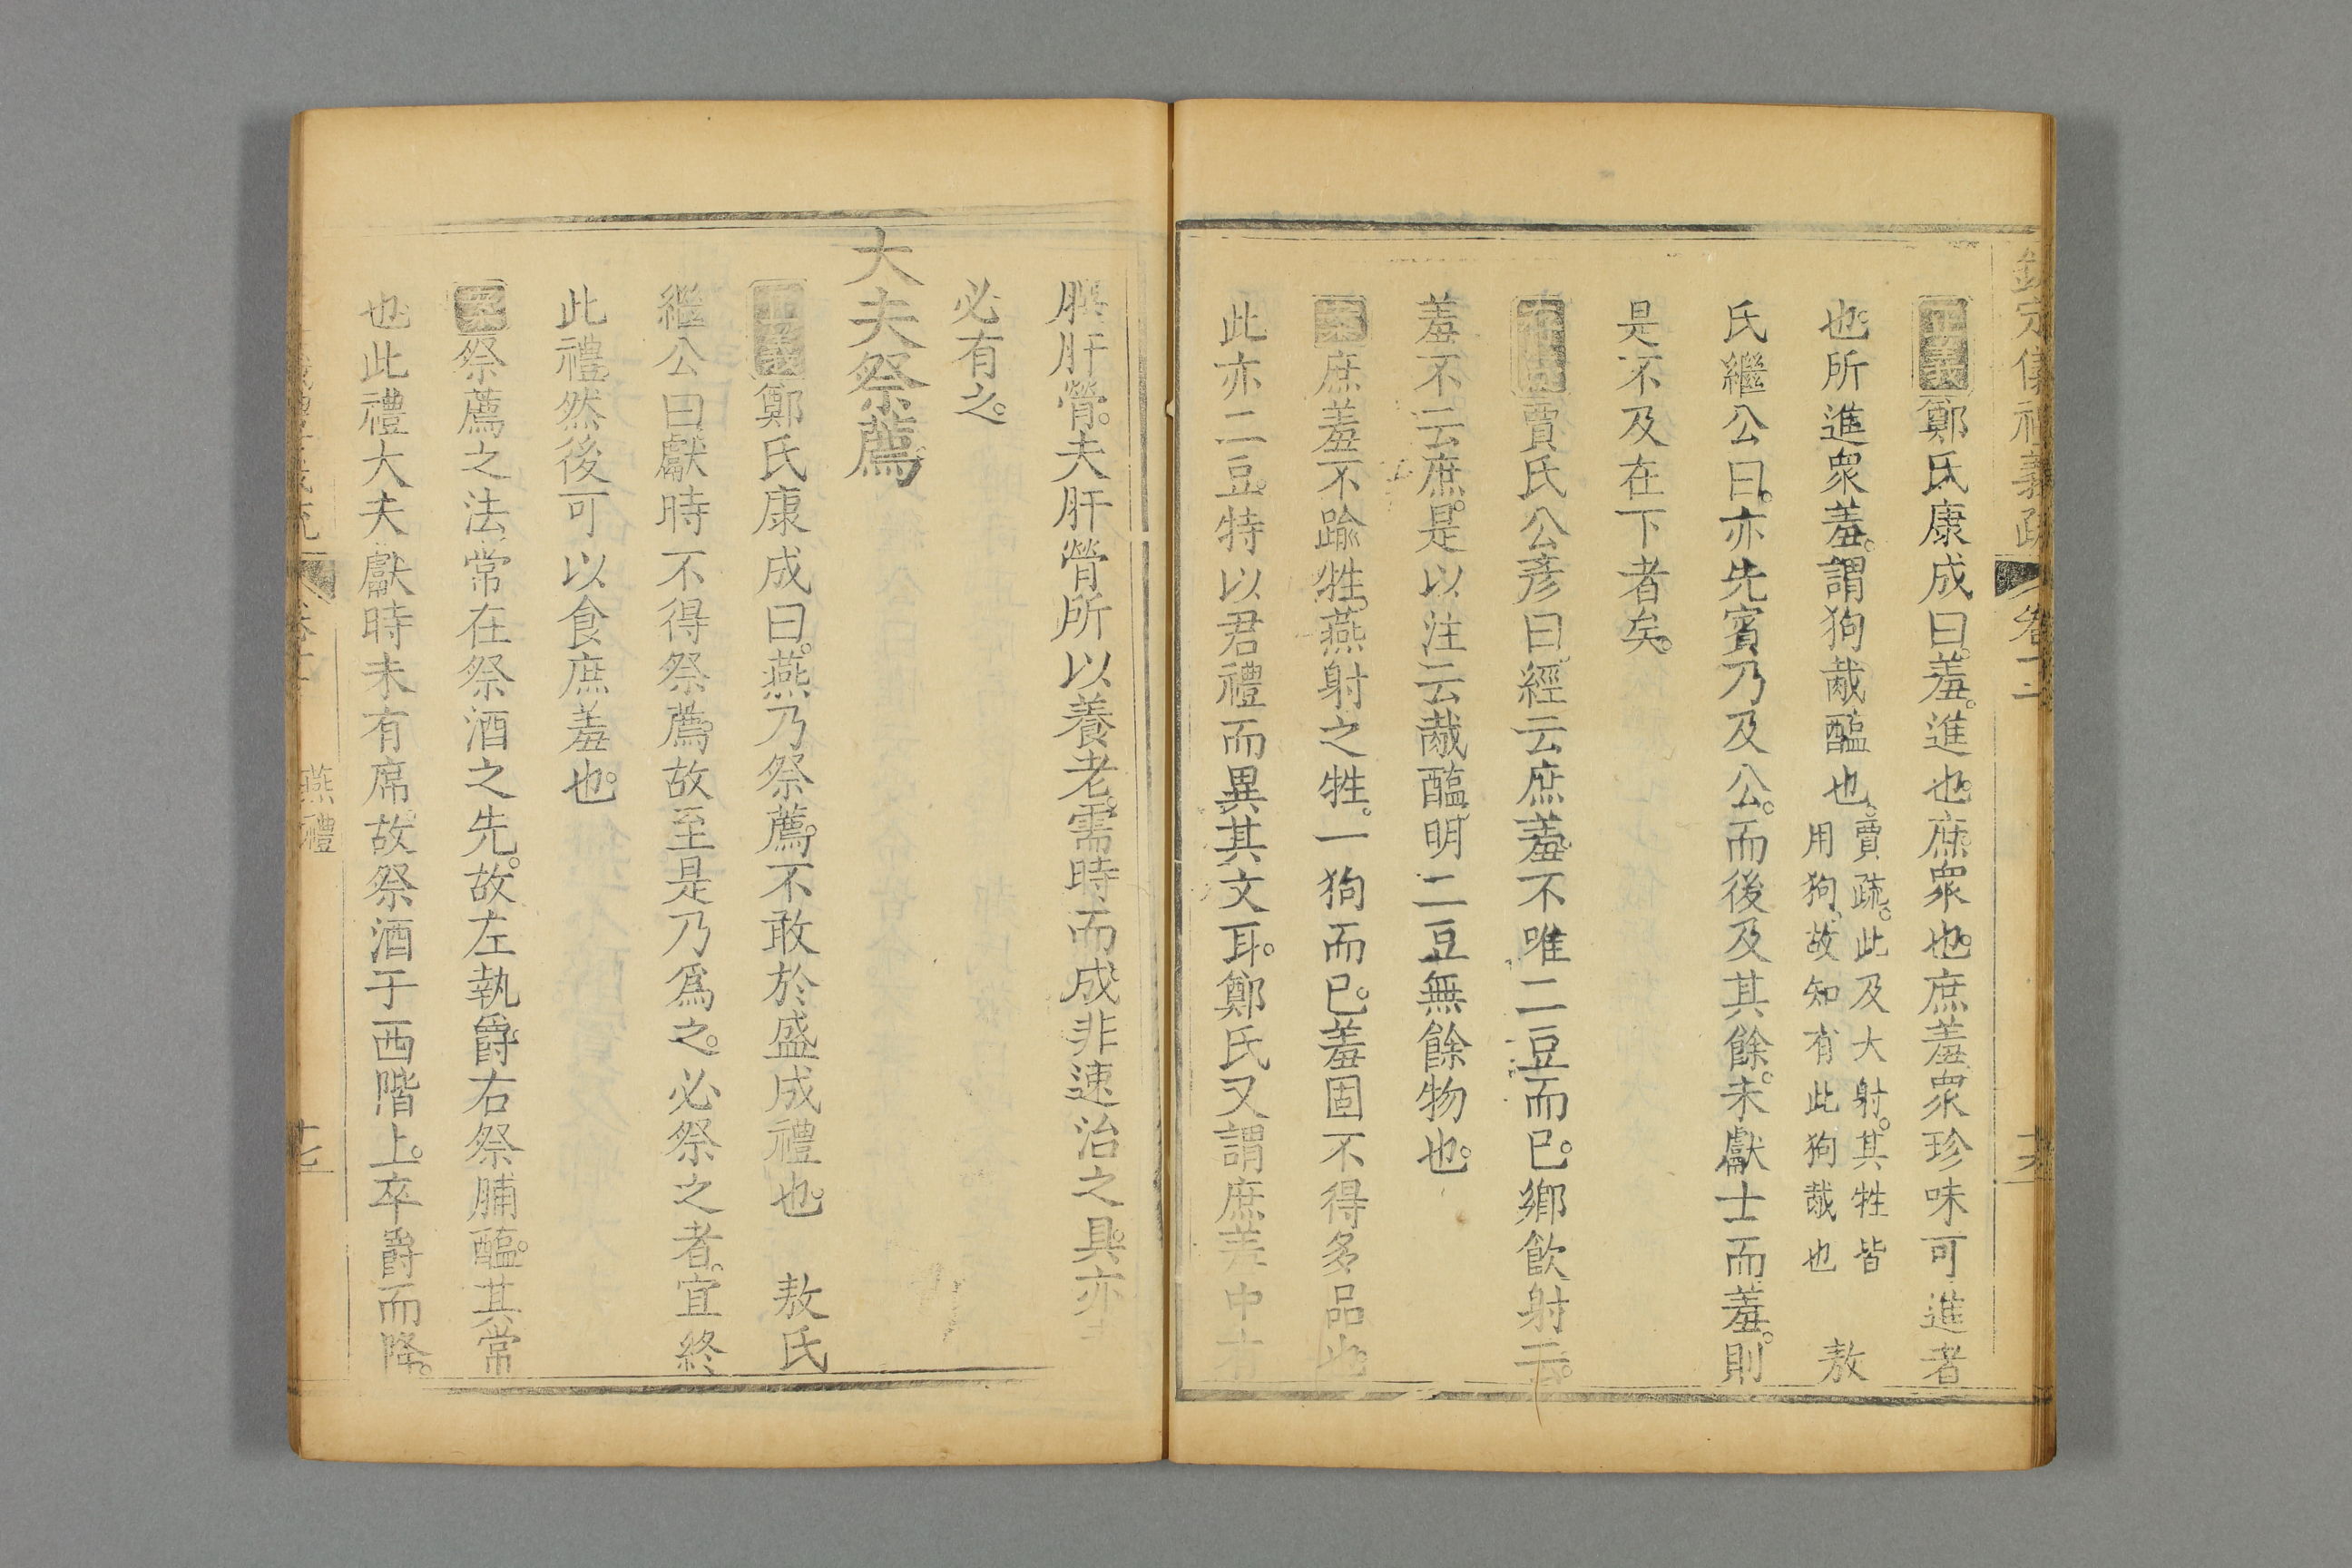 欽定儀禮義疏 卷十二 十六
正義鄭氏康成曰羞。進也。庶。衆也。庶羞衆珍味可進者
也。所進衆羞。謂狗胾醢也。賈疏。此及大射。其牲皆用狗。故知有此狗胾也 敖
氏繼公曰。亦先賓乃及公。而後及其餘。未獻士而羞。則
是不及在下者矣。
存疑賈氏公彥曰經云庶羞不唯二豆而已。鄉飲射云。
羞不云庶。是以注云胾醢明二豆無餘物也。
案庶羞不踰牲。燕射之牲。一狗而已。羞固不得多品也。
此亦二豆。特以君禮而異其文耳。鄭氏又謂庶羞中有
肝膋。夫肝膋所以養老。需時而成。非速治之具。亦
必有之。
大夫祭薦。
正義鄭氏康成曰。燕乃祭薦。不敢於盛成禮也。 敖氏
繼公曰獻時不得祭薦故至是乃爲之。必祭之者。宜終
此禮。然後可以食庶羞也。
案祭薦之法。常在祭酒之先。故左執爵。右祭脯醢。其常
也。此禮大夫獻時未有席。故祭酒于西階上。卒爵而降。
燕禮 十七